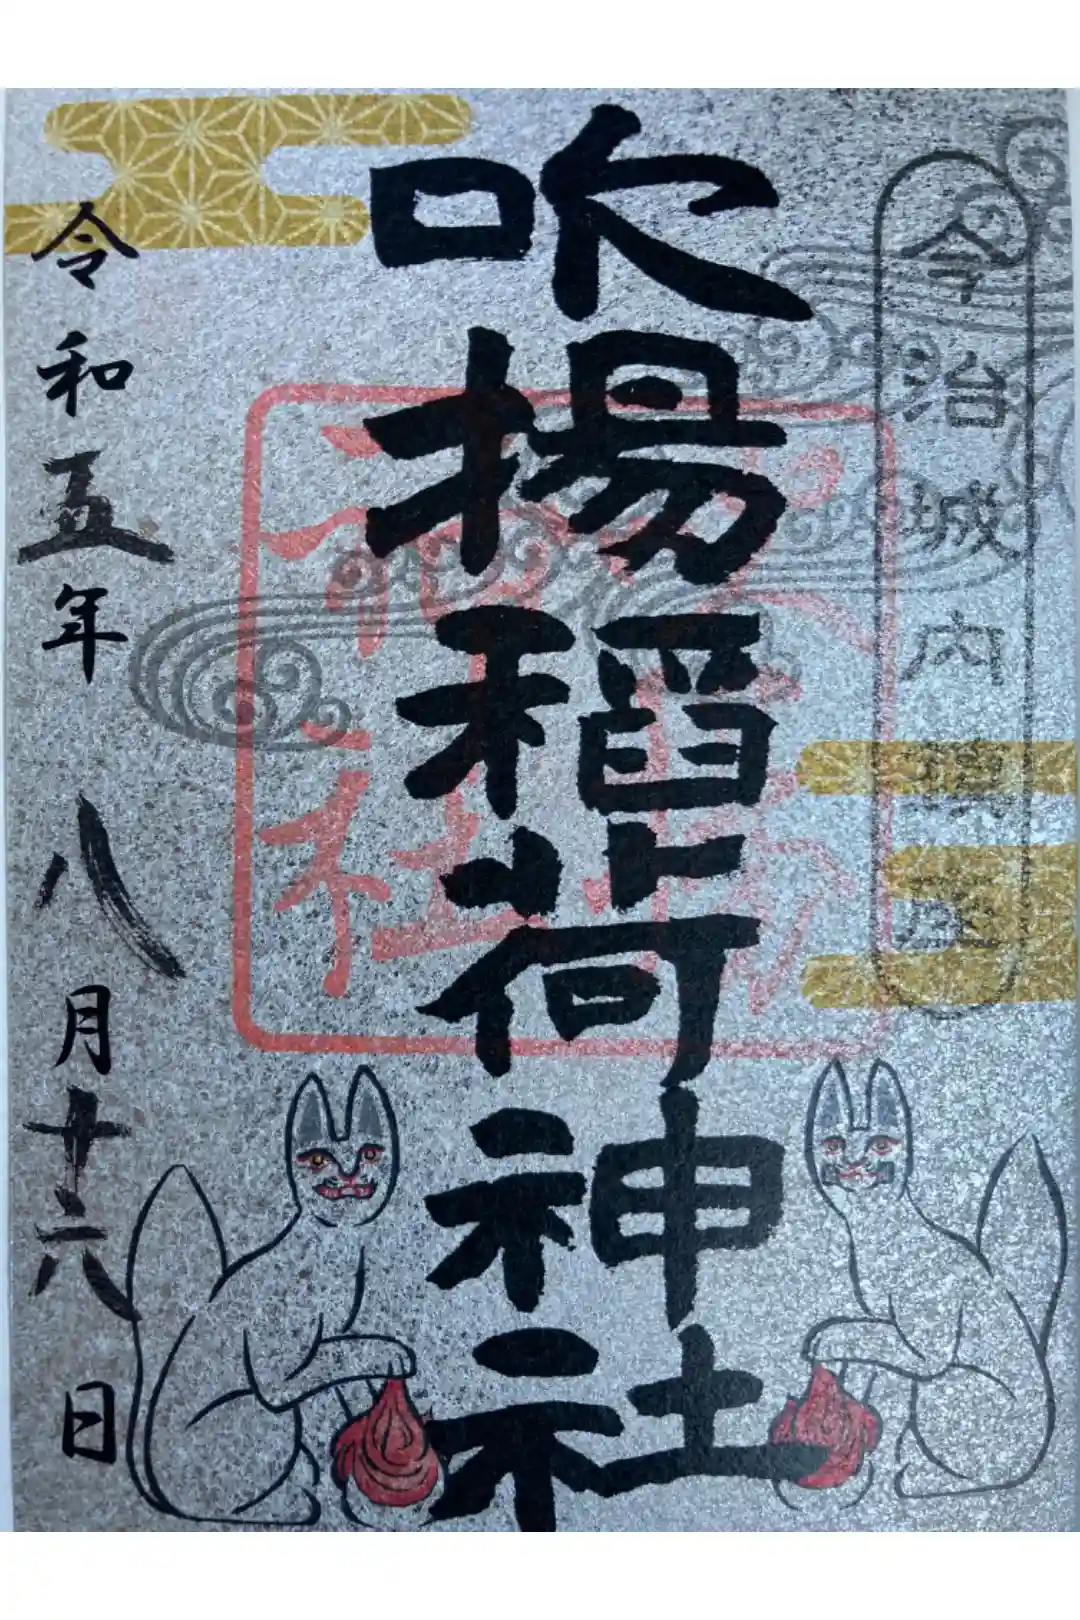 今治城内鎮座
吹揚稲荷神社
令和五年八月十六日